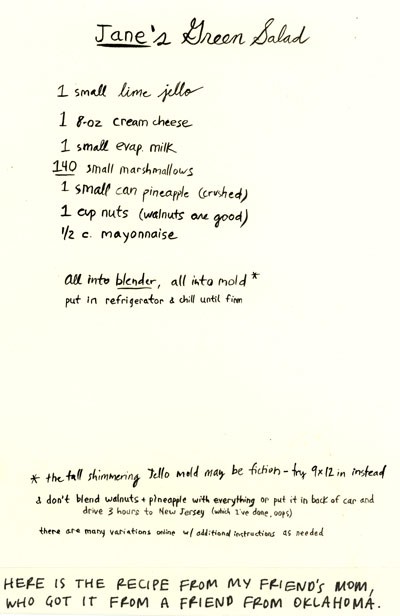 Jane's Green Salad
1 small lime jello
1 8-oz cream cheese
1 small evap. milk
140 small marshmallows
1 small can pineapple (crushed)
1 cup nuts (walnuts are good)
1/2 c. mayonnaise
all into blender, all into mold *
put in refrigerator & chill until firm
* the tall shimmering Jello mold may be fiction - try 9x12 in instead
& don't blend walnuts + pineapple with everything or put it in back of car and
drive 3 hours to New Jersey (which I've done, oops)
there are many variations online w/ additional instructions as needed
HERE IS THE RECIPE FROM MY FRIEND'S MOM,
WHO GOT IT FROM A FRIEND FROM OKLAHOMA.